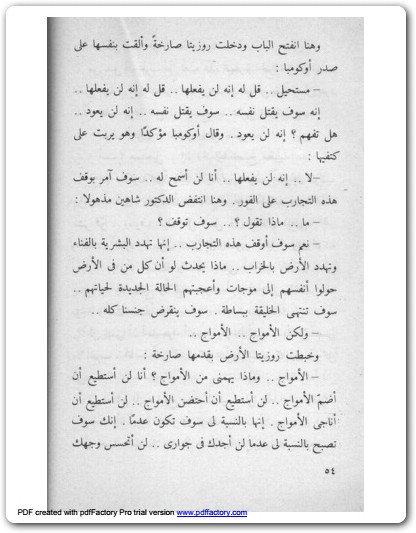 وهنا انفتح الباب ودخلت روزيتا صارخةً وألقت بنفسها على
صدر أوكومبا :
– مستحيل .. قل له إنه لن يفعلها .. قل له إنه لن يفعلها ..
إنه سوف يقتل نفسه .. سوف يقتل نفسه .. إنه لن يعود ..
هل تفهم ؟ إنه لن يعود . وقال أوكومبا مؤكدًا وهو يربت على
كتفيها :
–لا .. إنه لن يفعلها .. أنا لن أسمح له .. سوف آمر بوقف
هذه التجارب على الفور . وهنا انتفض الدكتور شاهين مذهولا :
– ما .. ماذا تقول ؟ .. سوف توقف ؟
– نعم سوف أوقف هذه التجارب .. إنها تهدد البشرية بالفناء
وتهدد الأرض بالخراب .. ماذا يحدث لو أن كل من فى الأرض
حولوا أنفسهم إلى موجات وأعجبتهم الحالة الجديدة لحياتهم ..
سوف تنتهى الخليقة ببساطة . سوف ينقرض جنسنا كله ..
– ولكن الأمواج .. الأمواج ..
وخبطت روزيتا الأرض بقدمها صارخة :
– الأمواج .. وماذا يهمنى من الأمواج ؟ أنا لن أستطيع أن
أضمّ الأمواج .. لن أستطيع أن أحتضن الأمواج .. لن أستطيع أن
أناجى الأمواج . إنها بالنسبة لى سوف تكون عدمًا . إنك سوف
تصبح بالنسبة لى عدما لن أجدك فى جوارى .. لن أتحسس وجهك
٥٤
PDF created with pdfFactory Pro trial version www.pdffactory.com